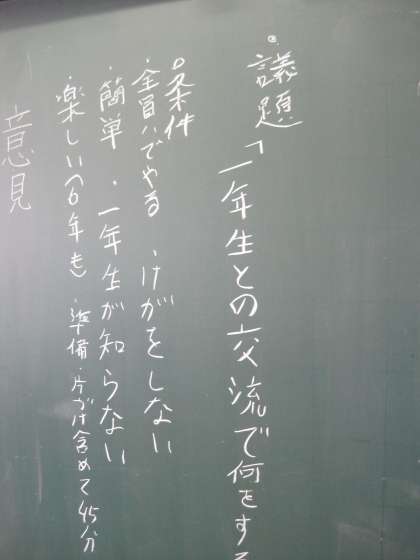 ◎議題「一年生との交流で何をする
○条件
・全員でやる ・けがをしない
・簡単 ・一年生が知らない
・楽しい(6年も) ・準備・片づけ含めて45分
意見